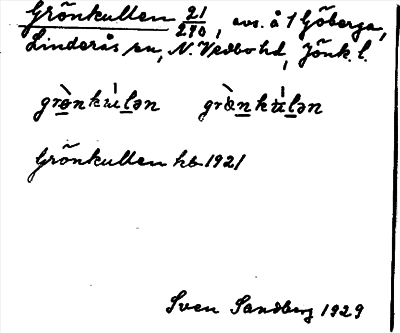 Grönkullen 21/290, avs. å 1 Göberga,
Linderås sn, N. Vedbo hd, Jönk. l.
grø̀nkúlən grǿnkúlən
Grönkullen kb 1921
Sven Sandberg 1929